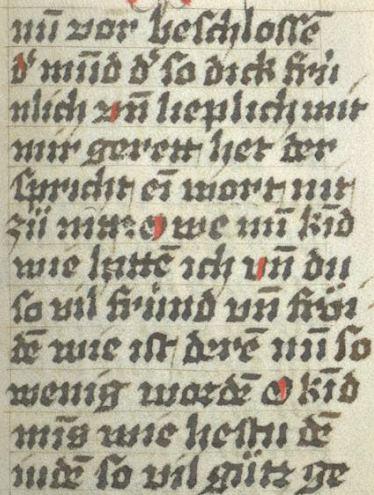 nū vor beschlossē
d' mūd d' so dick frü
nlich vn̄ lieplich mit
mir gerett het der
spricht eī wort nit
zü mir: o we mī kīd
wie hattē ich vn̄ du
so vil fründ vn̄ fröi
dē wie ist derē nū so
wenig wordē o kīd
mīs wie hestu dē
indē so vil gütz ge